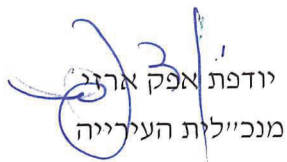 יודפת אפק ארזי
מנכ״לית העירייה